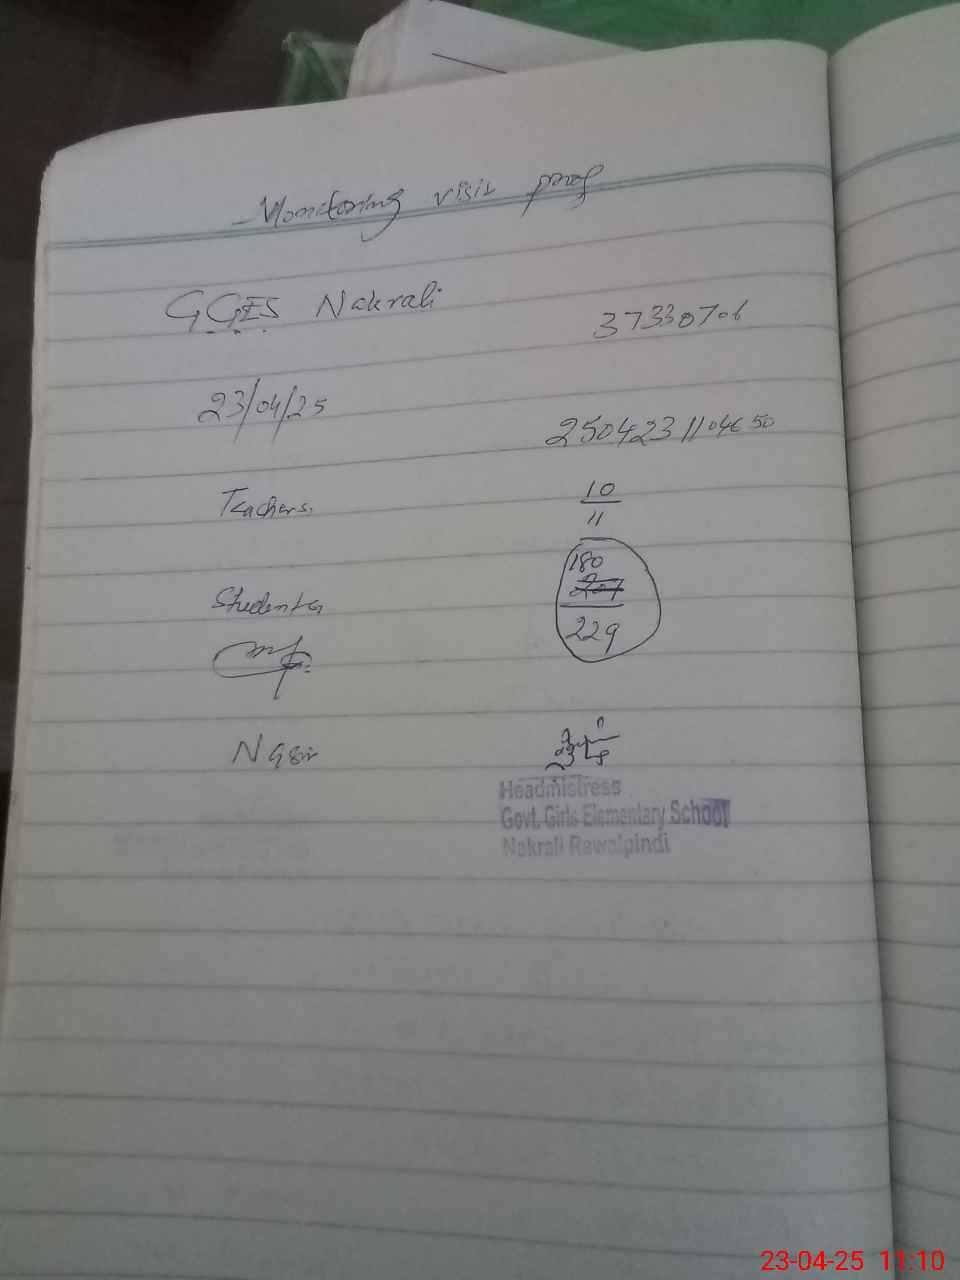 Monitoring visit proof
GGES Nakrali
37330706
23/04/25
Teachers.
10
11
Students
180
207
229
Headmistress
Govt. Girls Elementary School
Nakrali Rawalpindi
23-04-25 11:10